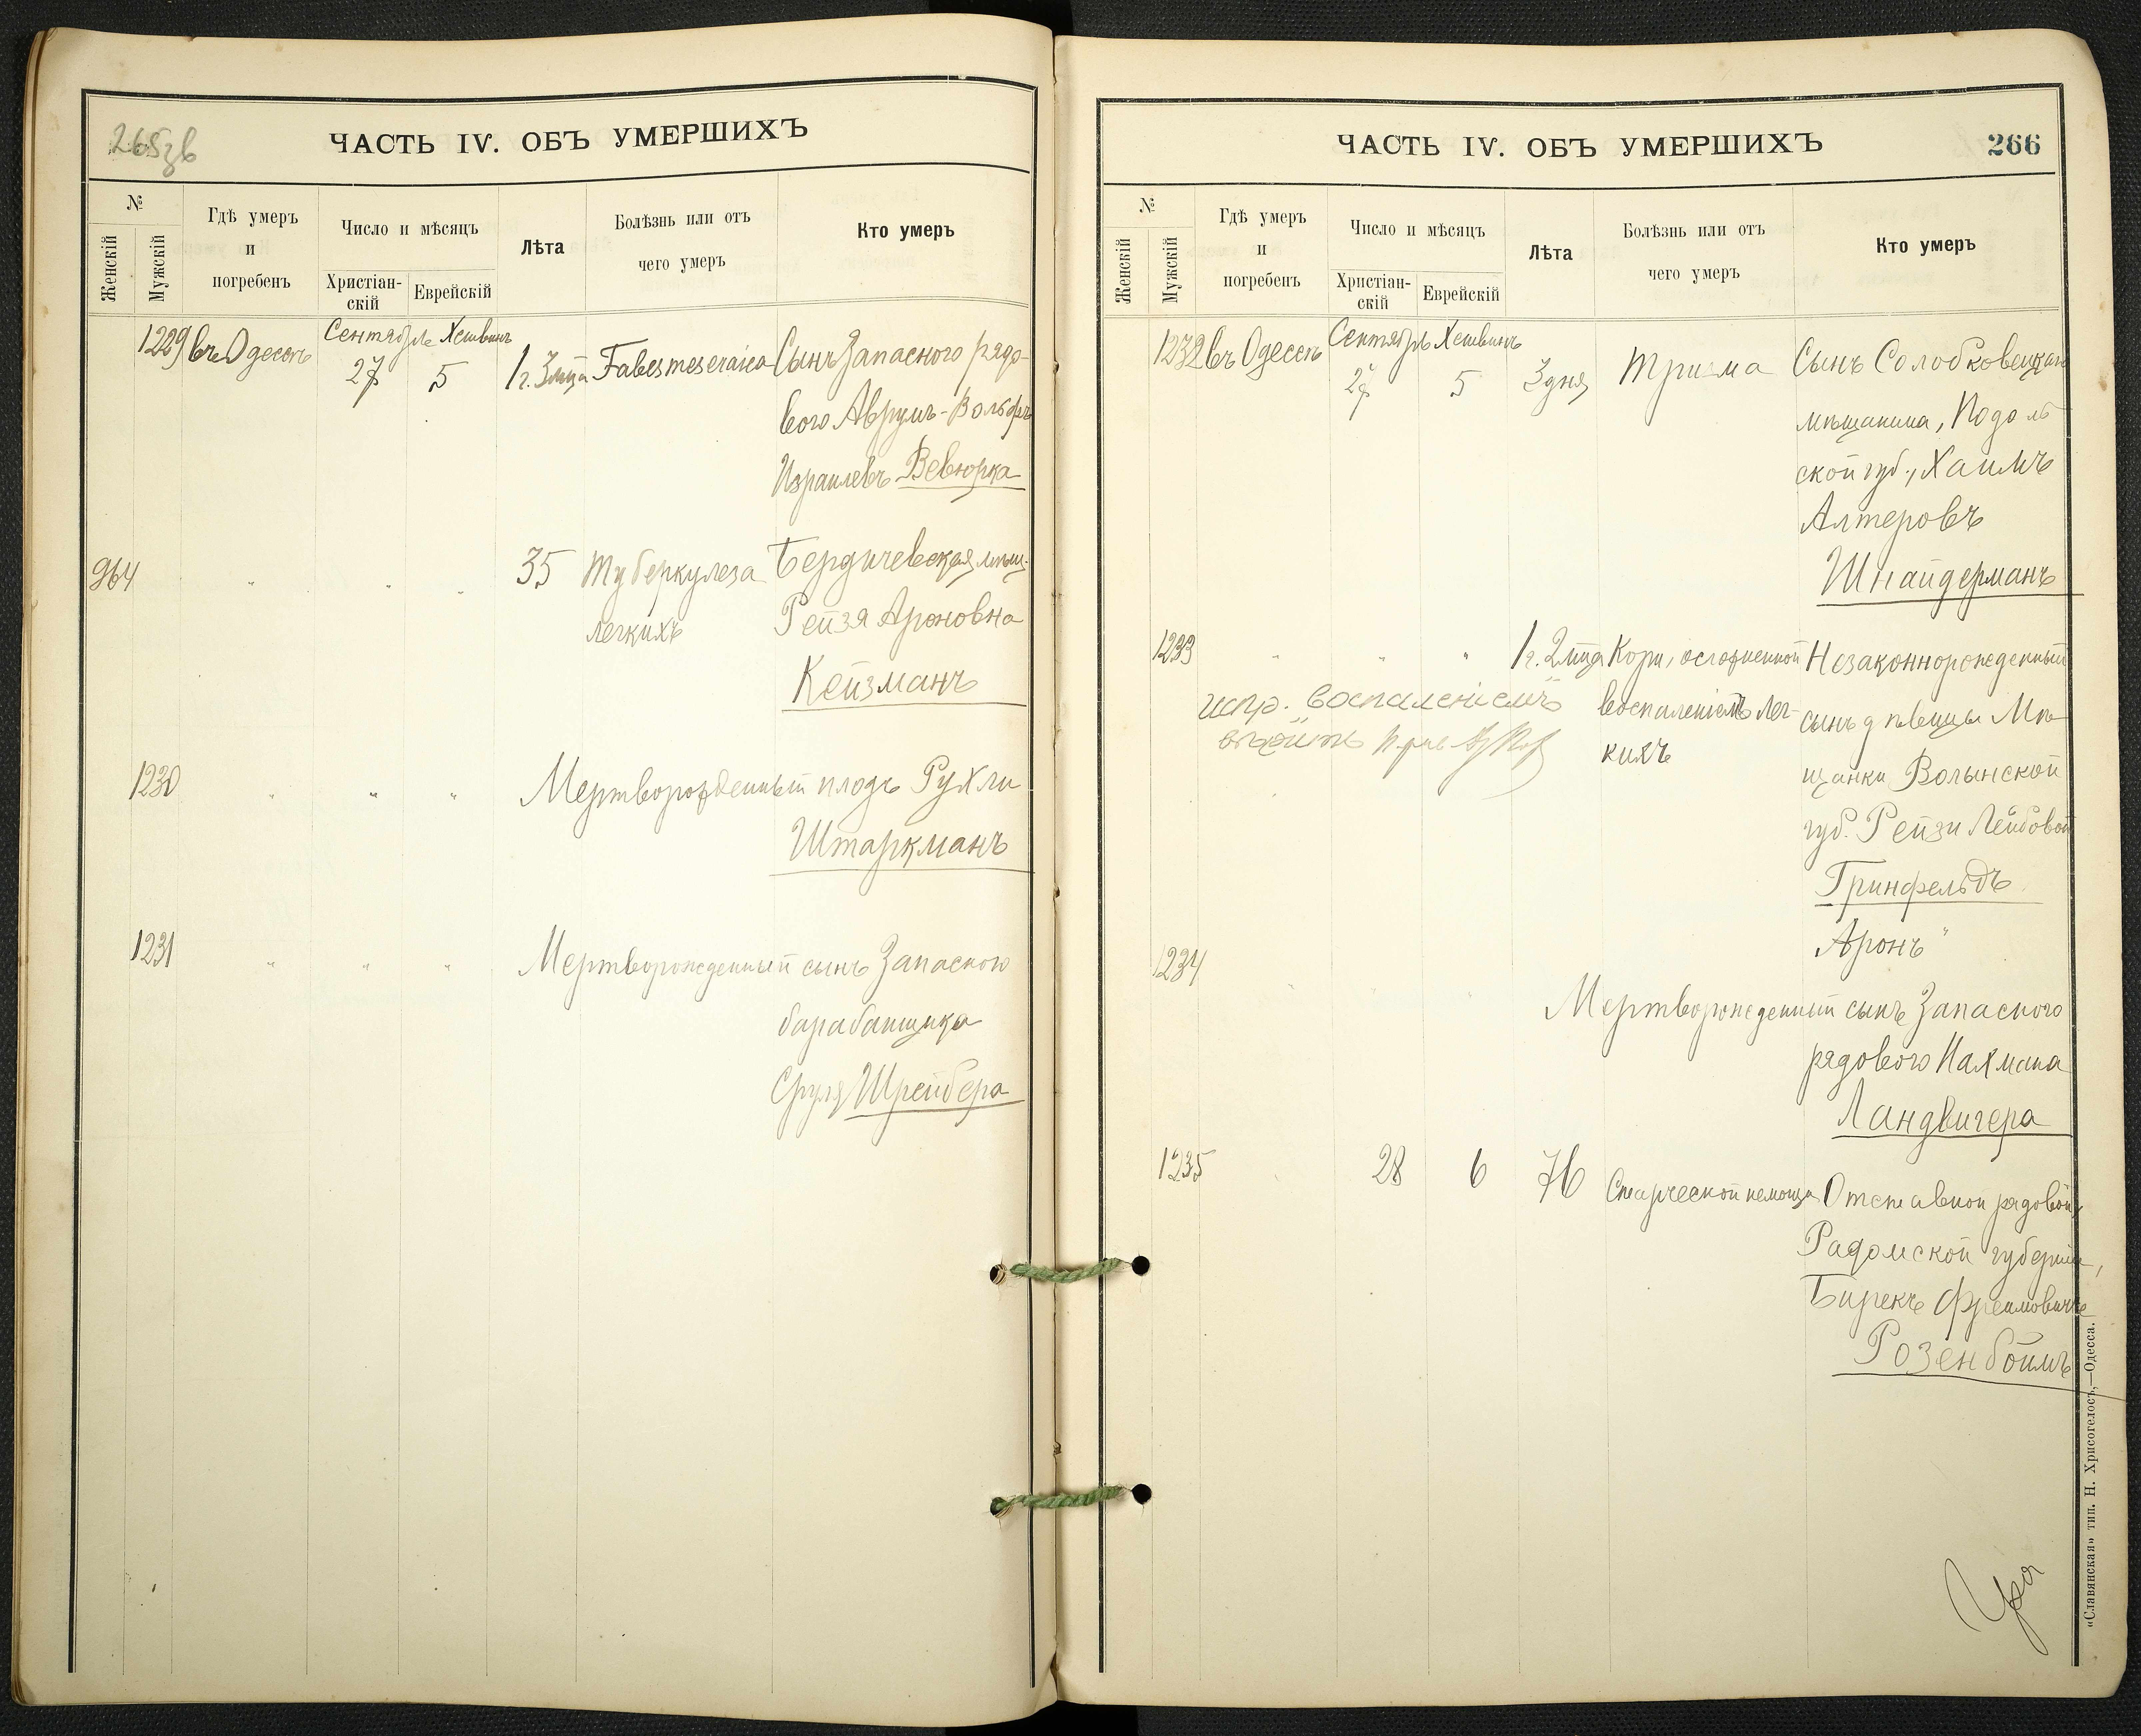 265зв
ЧАСТЬ IV. ОБЪ УМЕРШИХЪ
№
Женскій
Мужскій
Гдѣ умеръ
и
погребенъ
Число и мѣсяцъ
Христіан-
скій
Еврейскій
Лѣта
Болѣзнь или отъ
чего умеръ
Кто умеръ
1229 въ Одессѣ Сентябрь Хешвинъ 27 5 1 г. 3 мца Tabes meseraica Сынъ Запасного рядо-
вого Аврумъ-Вольфъ
Израилевъ Вевюрка
964 " " " 35 Туберкулеза Бердичевская мѣщ.
легкихъ Рейзя Ароновна
Кейзманъ
1230 " " " Мертворожденный плодъ Рухли
Штаркманъ
1231 " " " Мертворожденный сынъ Запасного
барабанщика
Сруля Шрейбера
ЧАСТЬ IV. ОБЪ УМЕРШИХЪ
266
№
Женскій
Мужскій
Гдѣ умеръ
и
погребенъ
Число и мѣсяцъ
Христіан-
скій
Еврейскій
Лѣта
Болѣзнь или отъ
чего умеръ
Кто умеръ
1232 въ Одессѣ Сентябрь Хешвинъ 27 5 3 дня Тризма Сынъ Солобковецкаго
мѣщанина, Подоль
ской губ., Хаимъ
Алтеровъ
Шнайдерманъ
1233 " " " 1 г. 2 мца Кори, осложненной Незаконнорожденный
испр. воспаленіемъ воспаленіемъ лег- сынъ дѣвицы Мѣ-
кихъ щанки Волынской
губ. Рейзи Лейбовой
Гринфельдъ
"Аронъ"
1234 " " "
Мертворожденный сынъ Запасного
рядового Нахмана
Ландвигера
1235 28 6 76 Старческой немощи Отставной рядовой,
Радомской губерніи,
Бирекъ Фреимовичъ
Розенбоймъ
«Славянская» тип. Н. Хрисогелосъ,—Одесса.